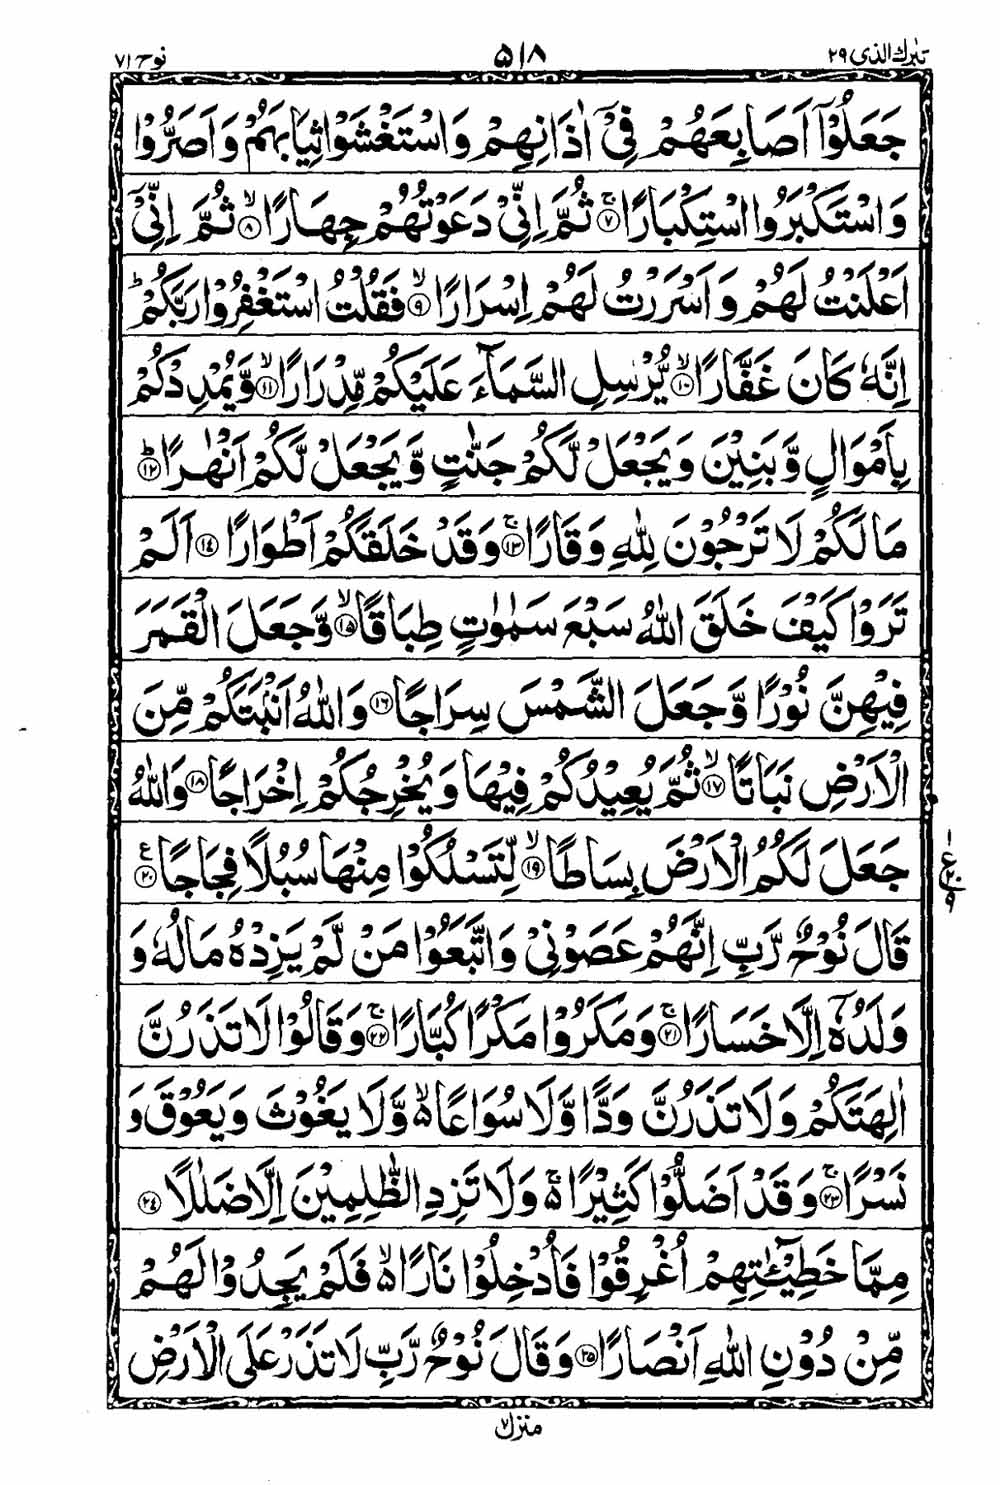 تبٰرك الذی ٢٩ ٥١٨ نوح ٧١
جَعَلُوْۤا اَصَابِعَهُمْ فِیْۤ اٰذَانِهِمْ وَاسْتَغْشَوْا ثِیَابَهُمْ وَاَصَرُّوْا
وَاسْتَكْبَرُوا اسْتِكْبَارًاۚ ﴿٧﴾ ثُمَّ اِنِّیْ دَعَوْتُهُمْ جِهَارًاۙ ﴿٨﴾ ثُمَّ اِنِّیْۤ
اَعْلَنْتُ لَهُمْ وَاَسْرَرْتُ لَهُمْ اِسْرَارًاۙ ﴿٩﴾ فَقُلْتُ اسْتَغْفِرُوْا رَبَّكُمْؕ
اِنَّهٗ كَانَ غَفَّارًاۙ ﴿١٠﴾ یُّرْسِلِ السَّمَآءَ عَلَیْكُمْ مِّدْرَارًاۙ ﴿١١﴾ وَّیُمْدِدْكُمْ
بِاَمْوَالٍ وَّبَنِیْنَ وَیَجْعَلْ لَّكُمْ جَنّٰتٍ وَّیَجْعَلْ لَّكُمْ اَنْهٰرًاؕ ﴿١٢﴾
مَا لَكُمْ لَا تَرْجُوْنَ لِلّٰهِ وَقَارًاۚ ﴿١٣﴾ وَقَدْ خَلَقَكُمْ اَطْوَارًا ﴿١٤﴾ اَلَمْ
تَرَوْا كَیْفَ خَلَقَ اللّٰهُ سَبْعَ سَمٰوٰتٍ طِبَاقًاۙ ﴿١٥﴾ وَّجَعَلَ الْقَمَرَ
فِیْهِنَّ نُوْرًا وَّجَعَلَ الشَّمْسَ سِرَاجًا ﴿١٦﴾ وَاللّٰهُ اَنْۢبَتَكُمْ مِّنَ
الْاَرْضِ نَبَاتًاۙ ﴿١٧﴾ ثُمَّ یُعِیْدُكُمْ فِیْهَا وَیُخْرِجُكُمْ اِخْرَاجًا ﴿١٨﴾ وَاللّٰهُ
جَعَلَ لَكُمُ الْاَرْضَ بِسَاطًاۙ ﴿١٩﴾ لِّتَسْلُكُوْا مِنْهَا سُبُلًا فِجَاجًا ﴿٢٠﴾ ع
١ ع ٢٠ ٩
قَالَ نُوْحٌ رَّبِّ اِنَّهُمْ عَصَوْنِیْ وَاتَّبَعُوْا مَنْ لَّمْ یَزِدْهُ مَالُهٗ وَ
وَلَدُهٗۤ اِلَّا خَسَارًاۚ ﴿٢١﴾ وَمَكَرُوْا مَكْرًا كُبَّارًاۚ ﴿٢٢﴾ وَقَالُوْا لَا تَذَرُنَّ
اٰلِهَتَكُمْ وَلَا تَذَرُنَّ وَدًّا وَّلَا سُوَاعًا ۙ۬ وَّلَا یَغُوْثَ وَیَعُوْقَ وَ
نَسْرًاۚ ﴿٢٣﴾ وَقَدْ اَضَلُّوْا كَثِیْرًا ۚ۬ وَلَا تَزِدِ الظّٰلِمِیْنَ اِلَّا ضَلٰلًا ﴿٢٤﴾
مِمَّا خَطِیْٓـٰٔتِهِمْ اُغْرِقُوْا فَاُدْخِلُوْا نَارًا ۙ۬ فَلَمْ یَجِدُوْا لَهُمْ
مِّنْ دُوْنِ اللّٰهِ اَنْصَارًا ﴿٢٥﴾ وَقَالَ نُوْحٌ رَّبِّ لَا تَذَرْ عَلَی الْاَرْضِ
منزل ٧